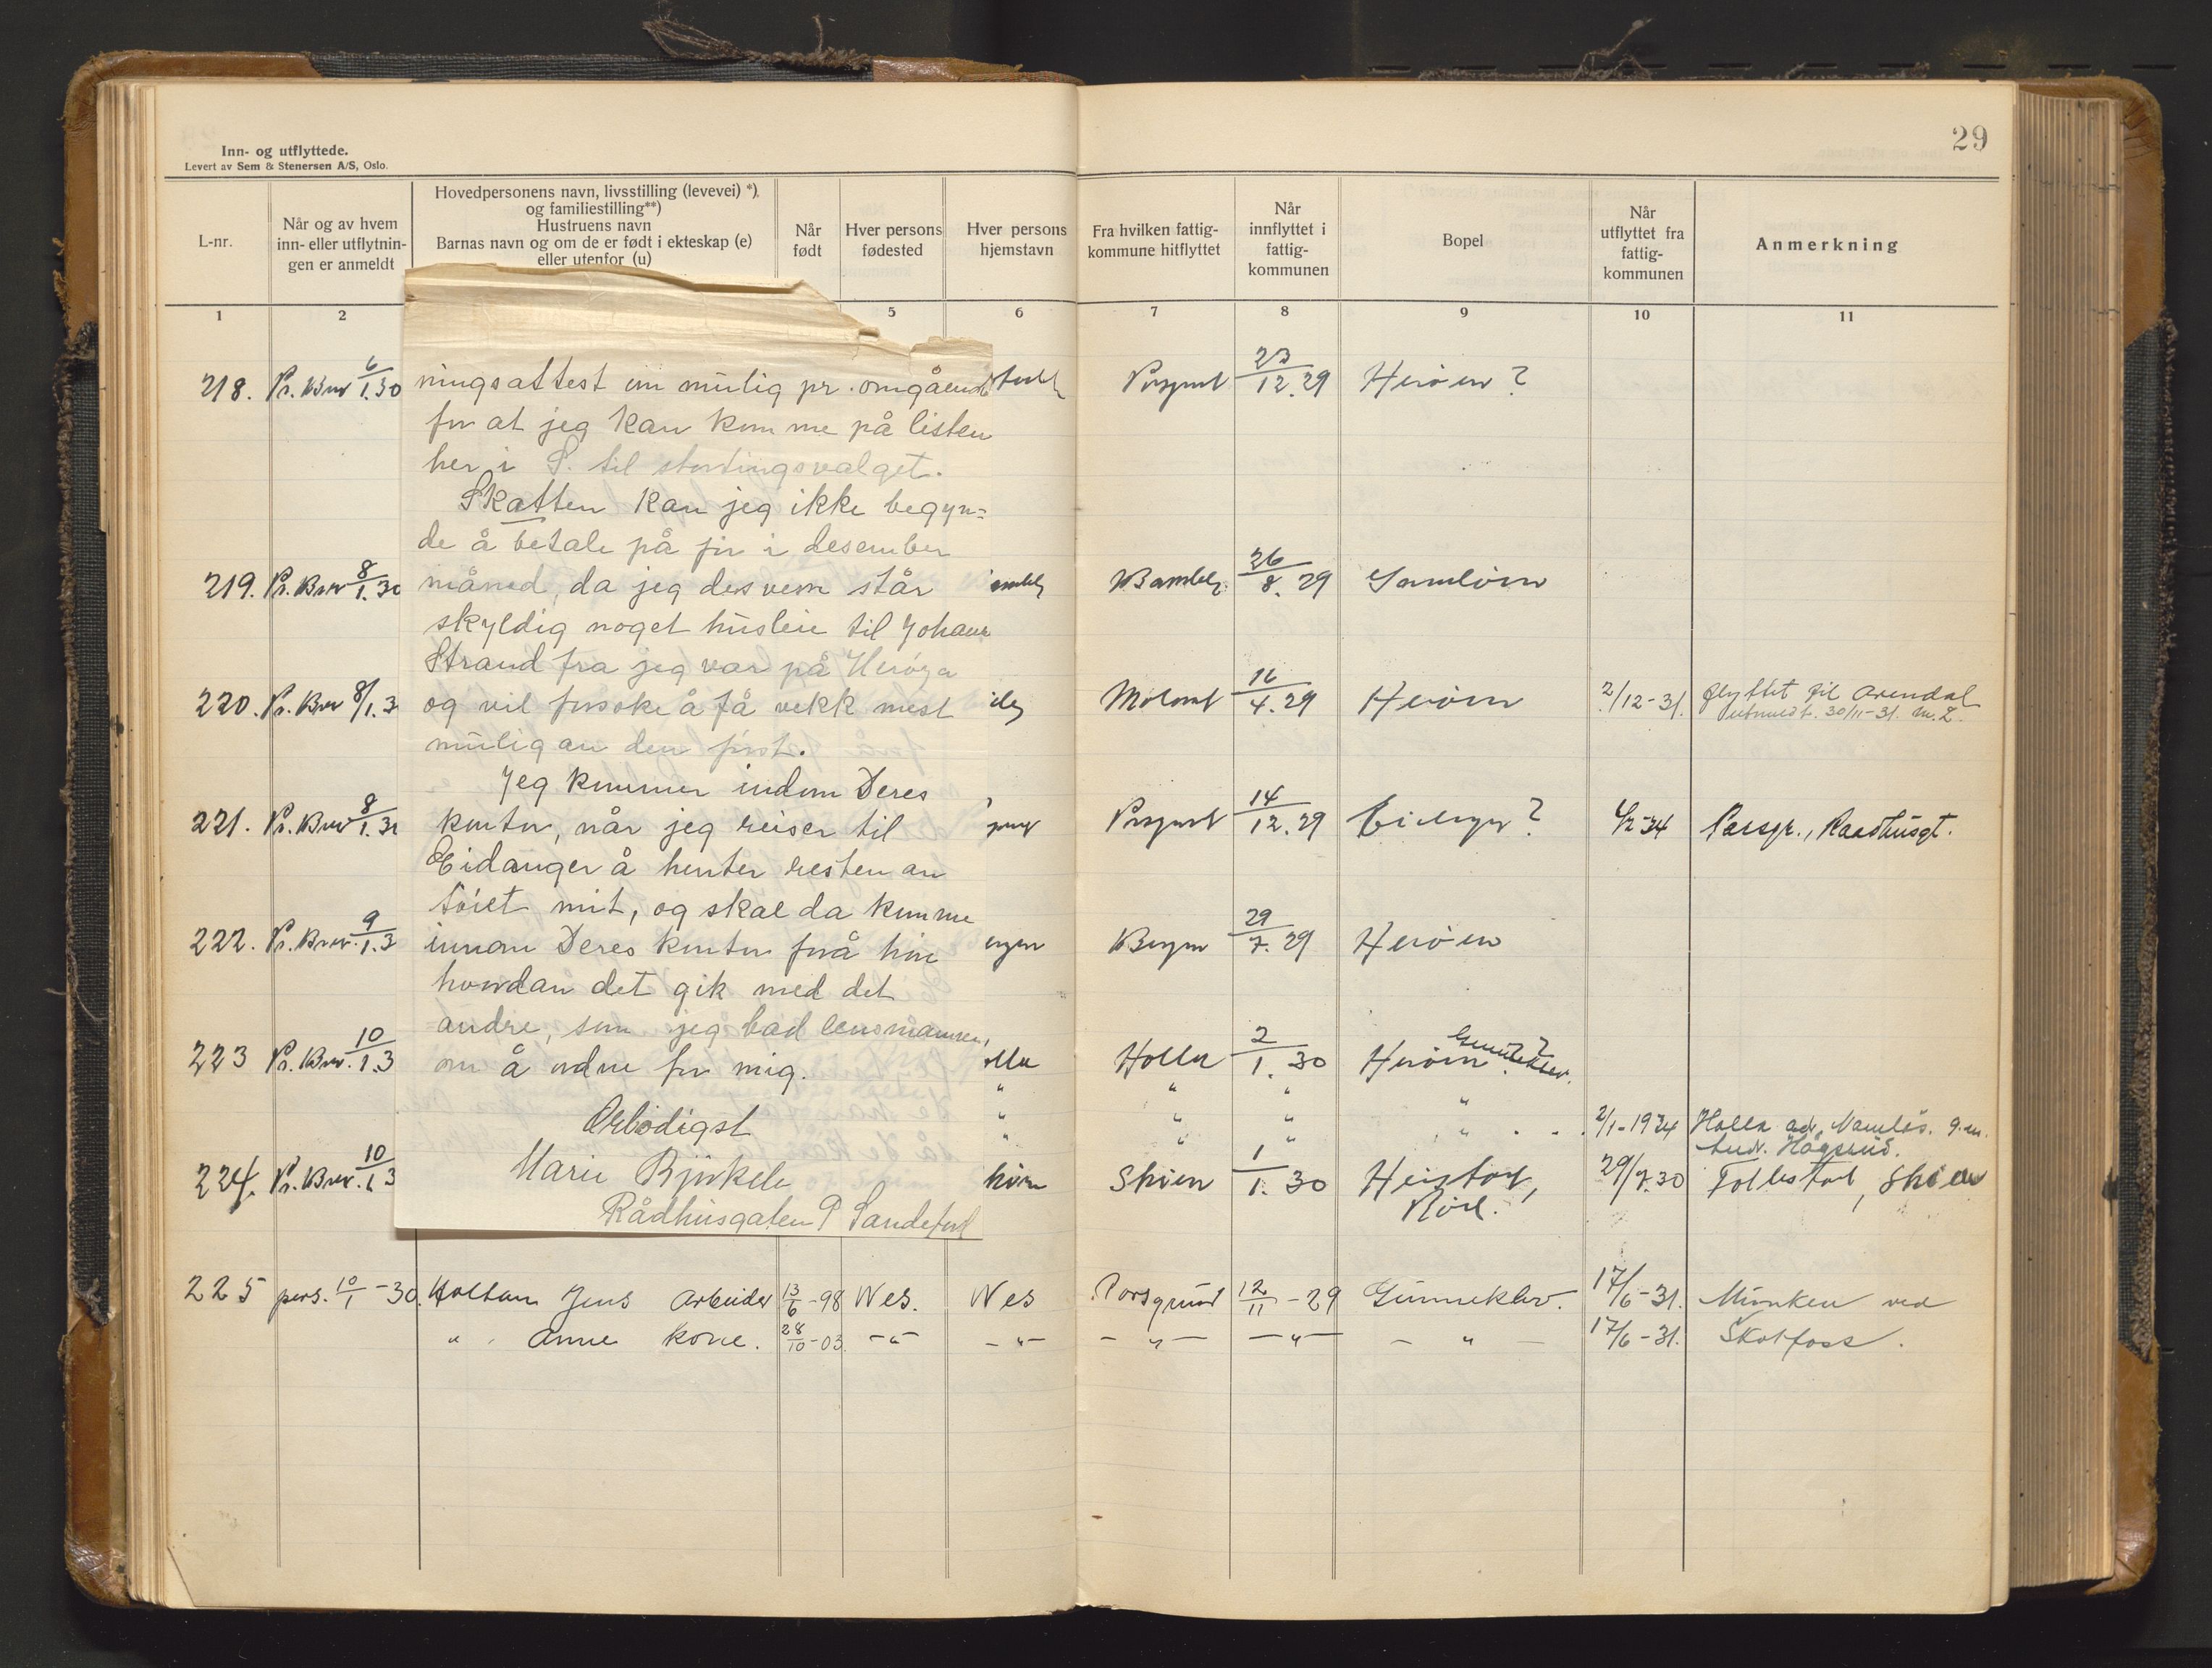 29
Inn- og utflyttede.
Levert av Sem & Stenersen A/S, Oslo.
L-nr.
Når og av hvem
inn- eller utflytnin-
gen er anmeldt
Hovedpersonens navn, livsstilling (levevei) *)
og familiestilling**)
Hustruens navn
Barnas navn og om de er født i ekteskap (e)
eller utenfor (u)
Når
født
Hver persons
fødested
Hver persons
hjemstavn
Fra hvilken fattig-
kommune hitflyttet
Når
innflyttet i
fattig-
kommunen
Bopel
Når
utflyttet fra
fattig-
kommunen
Anmerkning
1 2 5 6 7 8 9 10 11
ningsattest om mulig pr. omgående
for at jeg kan komme på listen
her i S. til stortingsvalget.
Skatten kan jeg ikke begyn=
de å betale på før i desember
måned, da jeg desverre står
skyldig noget husleie til Johan
Strand fra jeg var på Herøya
og vil forsøke å få vekk mest
mulig av den først.
Jeg kommer indom Deres
kontor, når jeg reiser til
Eidanger å henter resten av
tøiet mit, og skal da komme
innom Deres kontor forå høre
hvordan det gik med det
andre, som jeg bad lensmannen,
om å ordne for mig.
Ærbødigst
Marie Bjørkele
Rådhusgaten 9 Sandefjord
218. Pr. Brev 6/1.30 23/12.29 Herøen ?
219. Pr. Brev 8/1.30 Bamble 26/8.29
220. Pr. Brev 8/1.3 16/4.29 Herøen 2/12-31. flyttet til Arendal
utmeldt. 30/11-31.
221. Pr. Brev 8/1.30 Porsgrund 14/12.29 Eidanger ? Porsgr., Raadhusgt.
222. Pr. Brev. 9/1.3 Bergen 29/7.29 Herøen
223 Pr. Brev. 10/1.3 olla Holla 2/1.30 Herøen ? Gunneklev.
" " " "
" " " " 2/1-1934 Holla adr. Namløs. g.m.
" " " "
224. Pr. Brev. 10/1.3 Skien 1/1.30 Heistad, 29/7.30 Follestad, Skien
225 pers. 10/1-30. Holtan Jens Arbeider 13/6-98 Nes. Nes Porsgrund 12/11-29 Gunneklev. 17/6-31. Munken ved
" Anne kone. 28/10-03. -"- -"- -"- -"- -"- 17/6-31. Skotfoss.